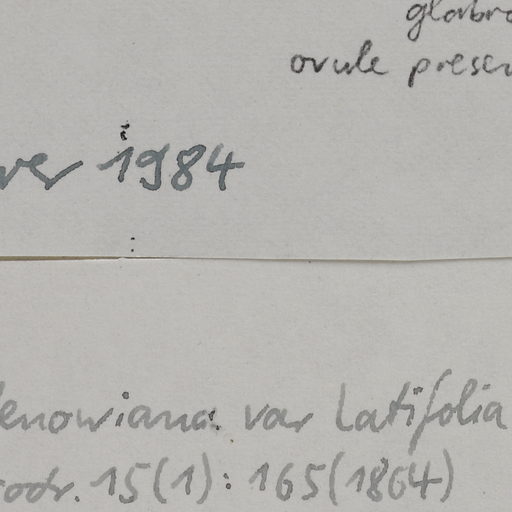 glabro
ovule presen
ver 1984
enowiana var latifolia
rodr. 15(1): 165(1864)